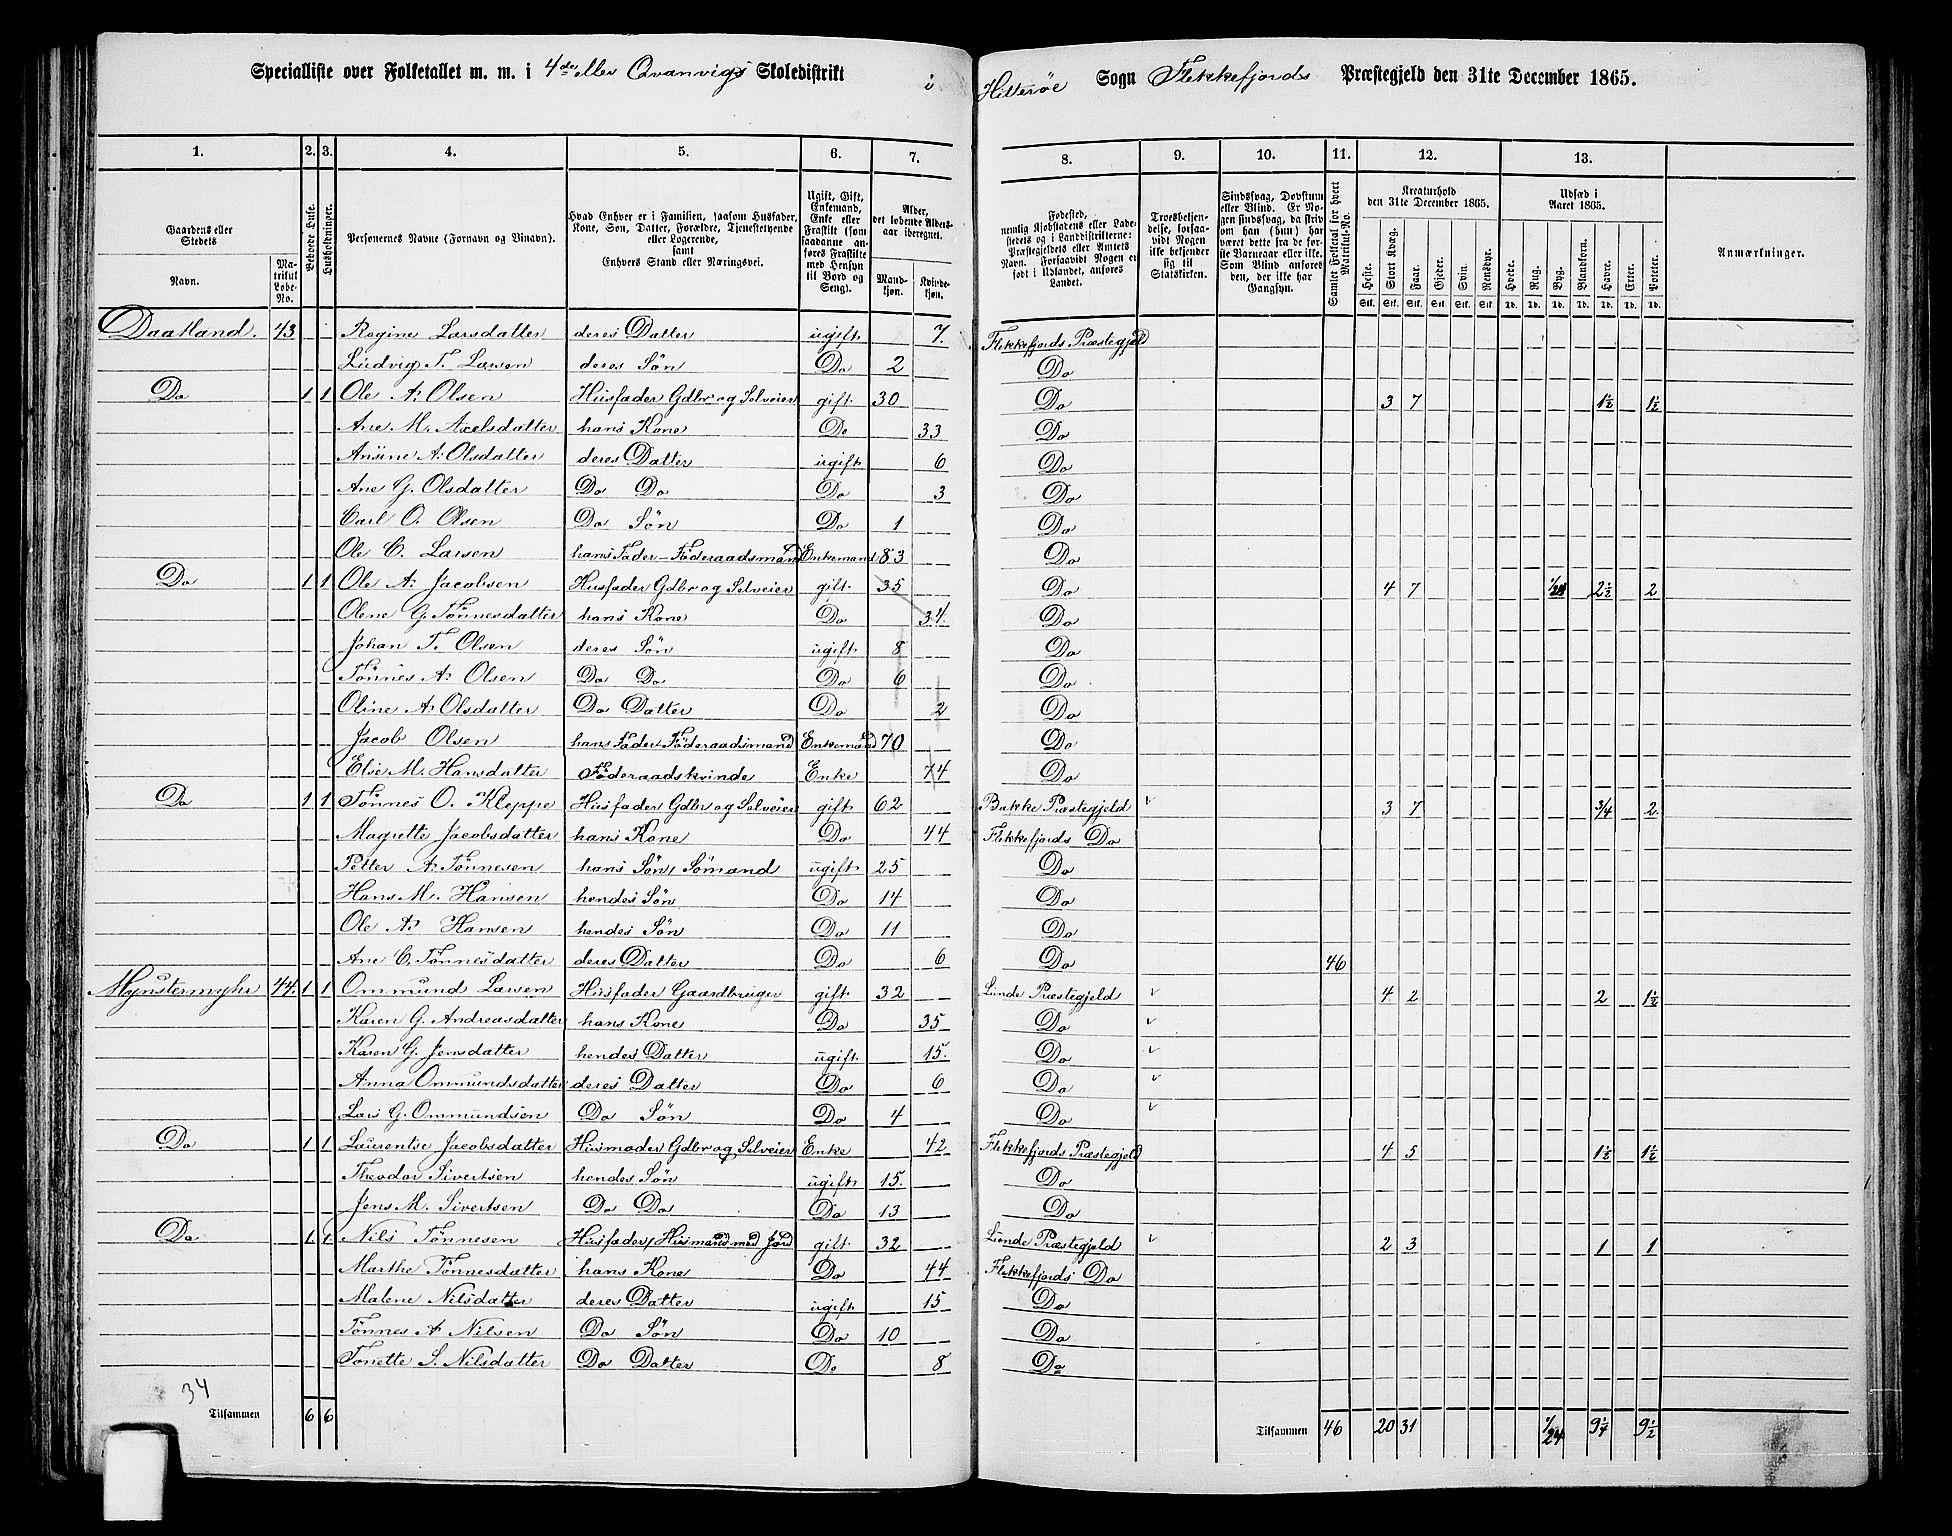 Specialliste over Folketallet m. m. i 4de eller Qvanvigs Skoledistrikt i Hitterøe Sogn Flekkefjords Præstegjeld den 31te December 1865.
1. 2. 3. 4. 5. 6. 7. 8. 9. 10. 11. 12. 13.
Gaardens eller Stedets Navn. Matrikul Løbe-No. Beboede Huse. Husholdninger. Personernes Navne (Fornavn og Tilnavn). Hvad Enhver er i Familien, saasom Husfader, Kone, Søn, Datter, Forældre, Tjenestetyende eller Logerende, samt Enhvers Stand eller Næringsvei. Ugift, Gift, Enkemand, Enke eller Fraskilt (som saadanne anføres Fraskilte med Hensyn til Bord og Seng). Alder, det løbende Aldersaar iberegnet. Mandkjøn. Kvindekjøn.
Fødested, nemlig Kjøbstadens eller Ladestedets og i Landdistrikterne: Præstegjeldets eller Amtets Navn. Forsaavidt Nogen er født i Udlandet, anføres Landet. Troesbekjendelse, forsaavidt Nogen ikke bekjender sig til Statskirken. Sindssvag, Døvstum eller Blind. Er Nogen sindssvag, da skrives om han (hun) har været dette fra de første Barneaar eller ikke. Som Blind anføres den, der ikke har Gangsyn. Samlet Folketal for hvert Matrikul-No. Kreaturhold den 31te December 1865. Heste. Stort Kvæg. Faar. Gjeder. Svin. Rensdyr. Udsæd i Aaret 1865. Hvede. Rug. Byg. Blandkorn. Havre. Erter. Poteter. Anmærkninger.
Daatland. 43 Regine Larsdatter deres Datter ugift 7. Flekkefjords Præstegjeld
Ludvig T. Larsen deres Søn Do 2 Do
Do 1 1 Ole A. Olsen Husfader Gdbr og Selveier gift 30 Do 3 7 1½ 1½
Ane M. Axelsdatter hans Kone Do 33 Do
Ansine A. Olsdatter deres Datter ugift 6 Do
Ane G. Olsdatter Do Do Do 3 Do
Carl O. Olsen Do Søn Do 1 Do
Ole C. Larsen hans Fader - Føderaadsmand Enkemand 83 Do
Do 1 1 Ole A. Jacobsen Husfader Gdbr og Selveier gift 35 Do 4 7 1/24 2½ 2
Olene G. Tønnesdatter hans Kone Do 34. Do
Johan T. Olsen deres Søn ugift 8 Do
Tønnes A. Olsen Do Do Do 6 Do
Oline A. Olsdatter Do Datter Do 2 Do
Jacob Olsen hans Fader - Føderaadsmand Enkemand 70 Do
Else M. Hansdatter Føderaadskvinde Enke 74 Do
Do 1 1 Tønnes O. Kleppe Husfader Gdbr og Selveier gift 62 Bakke Præstegjeld 3 7 3/4 2
Magrette Jacobsdatter hans Kone Do 44 Flekkefjords Do
Petter A. Tønnesen hans Søn, Sømand ugift 25 Do
Hans M. Hansen hendes Søn Do 14 Do
Ole A. Hansen hendes Søn Do 11 Do
Ane C. Tønnesdatter deres Datter Do 6 Do 46
Mynstermyhr 44. 1 1 Ommund Larsen Husfader Gaardbruger gift 32 Lunde Præstegjeld 4 2 2 1½
Karen G. Andreasdatter hans Kone Do 35 Do
Karen G. Jensdatter hendes Datter ugift 15. Do
Anna Ommundsdatter deres Datter Do 6 Do
Lars G. Ommundsen Do Søn Do 4 Do
Do 1 1 Laurentse Jacobsdatter Husmoder Gdbr og Selveier Enke 42 Flekkefjords Præstegjeld 4 5 1½ 1½
Theodor Sivertsen hendes Søn ugift 15. Do
Jens M. Sivertsen Do Do Do 13 Do
Do 1 1 Nils Tønnesen Husfader, Husmand med Jord gift 32 Lunde Præstegjeld 2 3 1 1
Marthe Tønnesdatter hans Kone Do 44 Flekkefjords Do
Malene Nilsdatter deres Datter ugift 15 Do
Tønnes A Nilsen Do Søn Do 10 Do
Tonette S. Nilsdatter Do Datter Do 8 Do
34
Tilsammen 6 6 Tilsammen 46 20 31 1/24 9¼ 9½